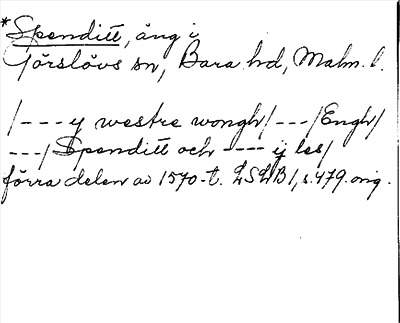 *Spenditt, äng i
Görslövs sn, Bara hd, Malm. l.
/--- y westre wongh/---/Engh/
---/Spenditt och ---- ij les/
förra delen av 1570-t. LSLB 1, s. 479. orig.